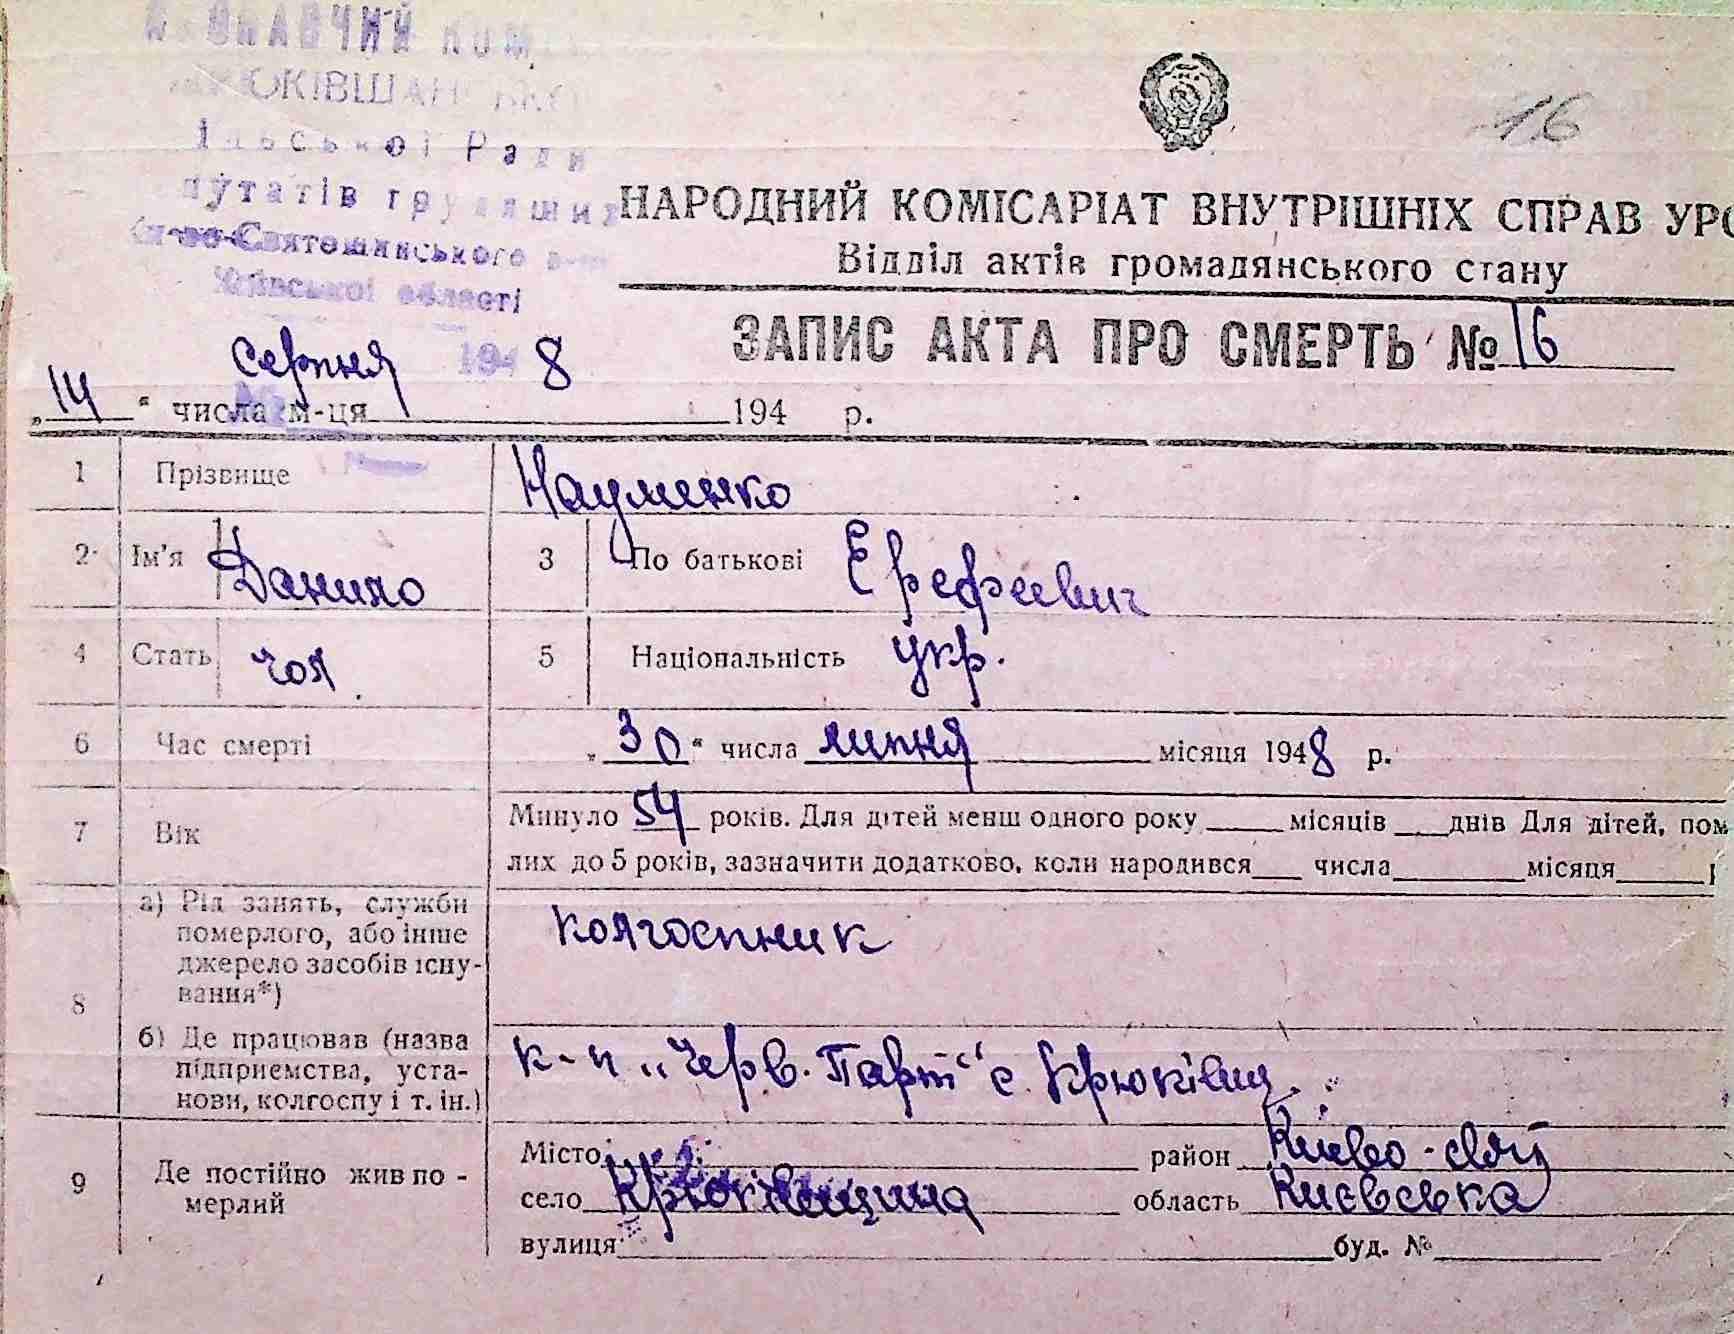 16
ільської Ради
путатів трудящих
Києво-Святошинського
Київської області
НАРОДНИЙ КОМІСАРІАТ ВНУТРІШНІХ СПРАВ УРС
Відділ актів громадянського стану
ЗАПИС АКТА ПРО СМЕРТЬ № 16
„14“ числа м-ця серпня 194 8 194 р.
1 Прізвище Науменко
2 Ім’я Данило 3 По батькові Ерефеевич
4 Стать чол. 5 Національність укр.
6 Час смерті „30“ числа липня місяця 1948 р.
7 Вік Минуло 54 років. Для дітей менш одного року ___ місяців ___ днів Для дітей, пом
лих до 5 років, зазначити додатково, коли народився ___ числа ___ місяця ___
8 а) Рід занять, служби
померлого, або інше
джерело засобів існу-
вання*)
колгоспник
б) Де працював (назва
підприємства, уста-
нови, колгоспу і т. ін.)
к-п „Черв. Парт“ с. Крюківщ.
9 Де постійно жив по-
мерлий
Місто ___ район Києво-Свят
село Крюківщина область Києвська
вулиця ___ буд. №